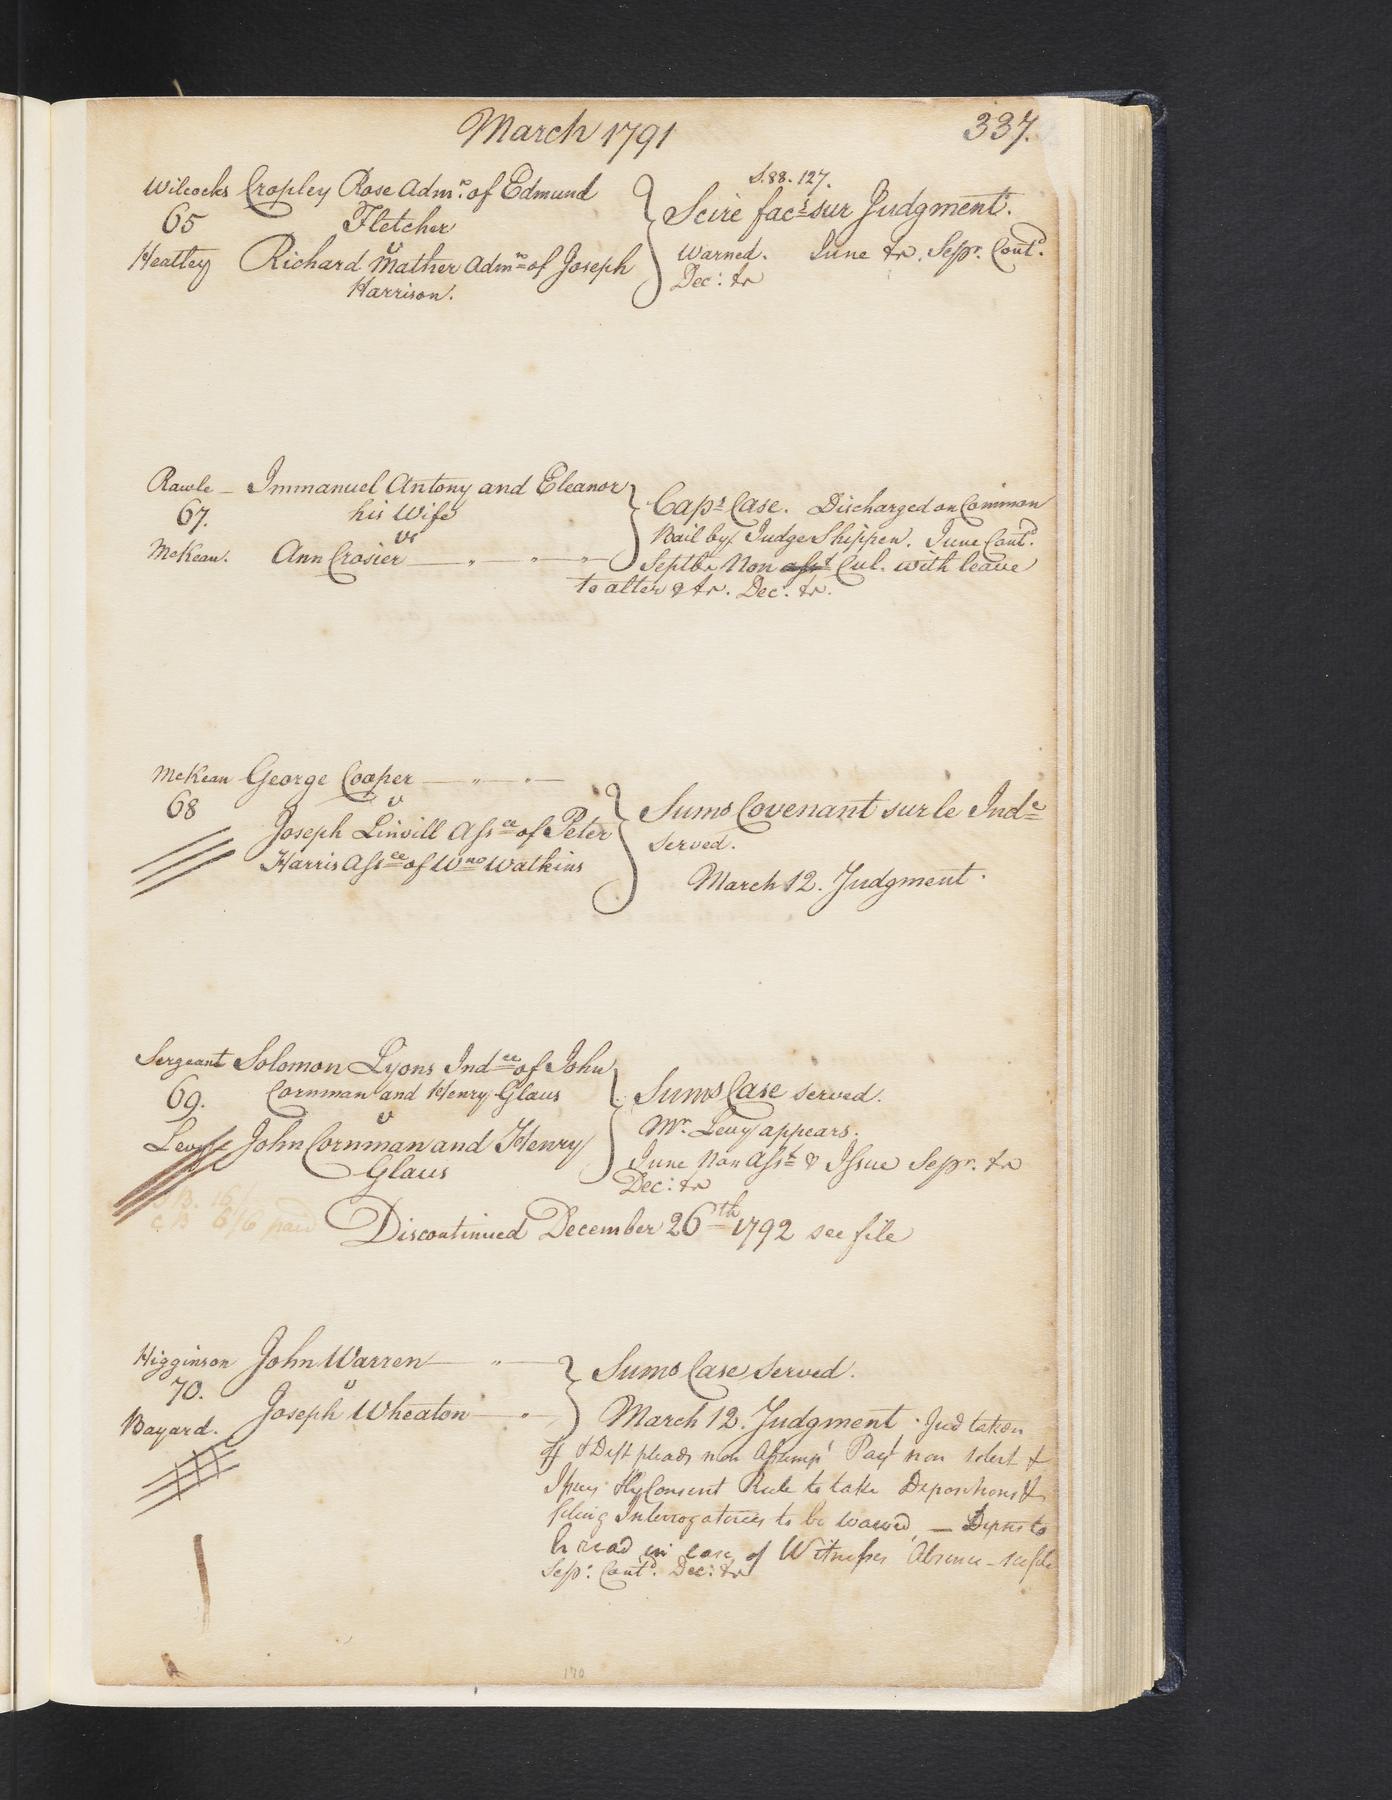 March 1791
337.
Wilcocks Cropley Rose Admr. of Edmund
65 Fletcher
v
Heatley Richard Mather Admr of Joseph
Harrison.
S.88. 127.
Scire facs sur Judgment.
Warned. June &r. Sepr. Contd.
Dec: &r
Rawle - Immanuel Antony and Eleanor
67. his Wife
vs
McKean. Ann Crosier
Caps Case. Discharged on Common
Bail by Judge Shippen. June Contd.
Septbr Non Cul. with leave
to alter & &r. Dec. &r.
McKean George Cooper
68 v
Joseph Linvill Assee of Peter
Harris Assee of Wm Watkins
Sums Covenant sur le Indre
served.
March 12. Judgment.
Sergeant Solomon Lyons Indee of John
69. Cornman and Henry Glaus
v
Levy John Cornman and Henry
Glaus
Sums Case served.
Mr. Levy appears.
June Non Asst & Issue Sepr. &r
Dec: &r
C B 6/6 paid
Discontinued December 26th 1792 see file
Higginson John Warren
70. v
Bayard. Joseph Wheaton
Sums Case Served.
March 12. Judgment. Jud taken
off & Deft pleads non Assump Payt non solvt &
Issue By Consent Rule to take Depositions &
filing Interrogatories to be waived, — Depns to
be read in case of Witnesses Absence - see file
Sepr: Contd. Dec: &r
170